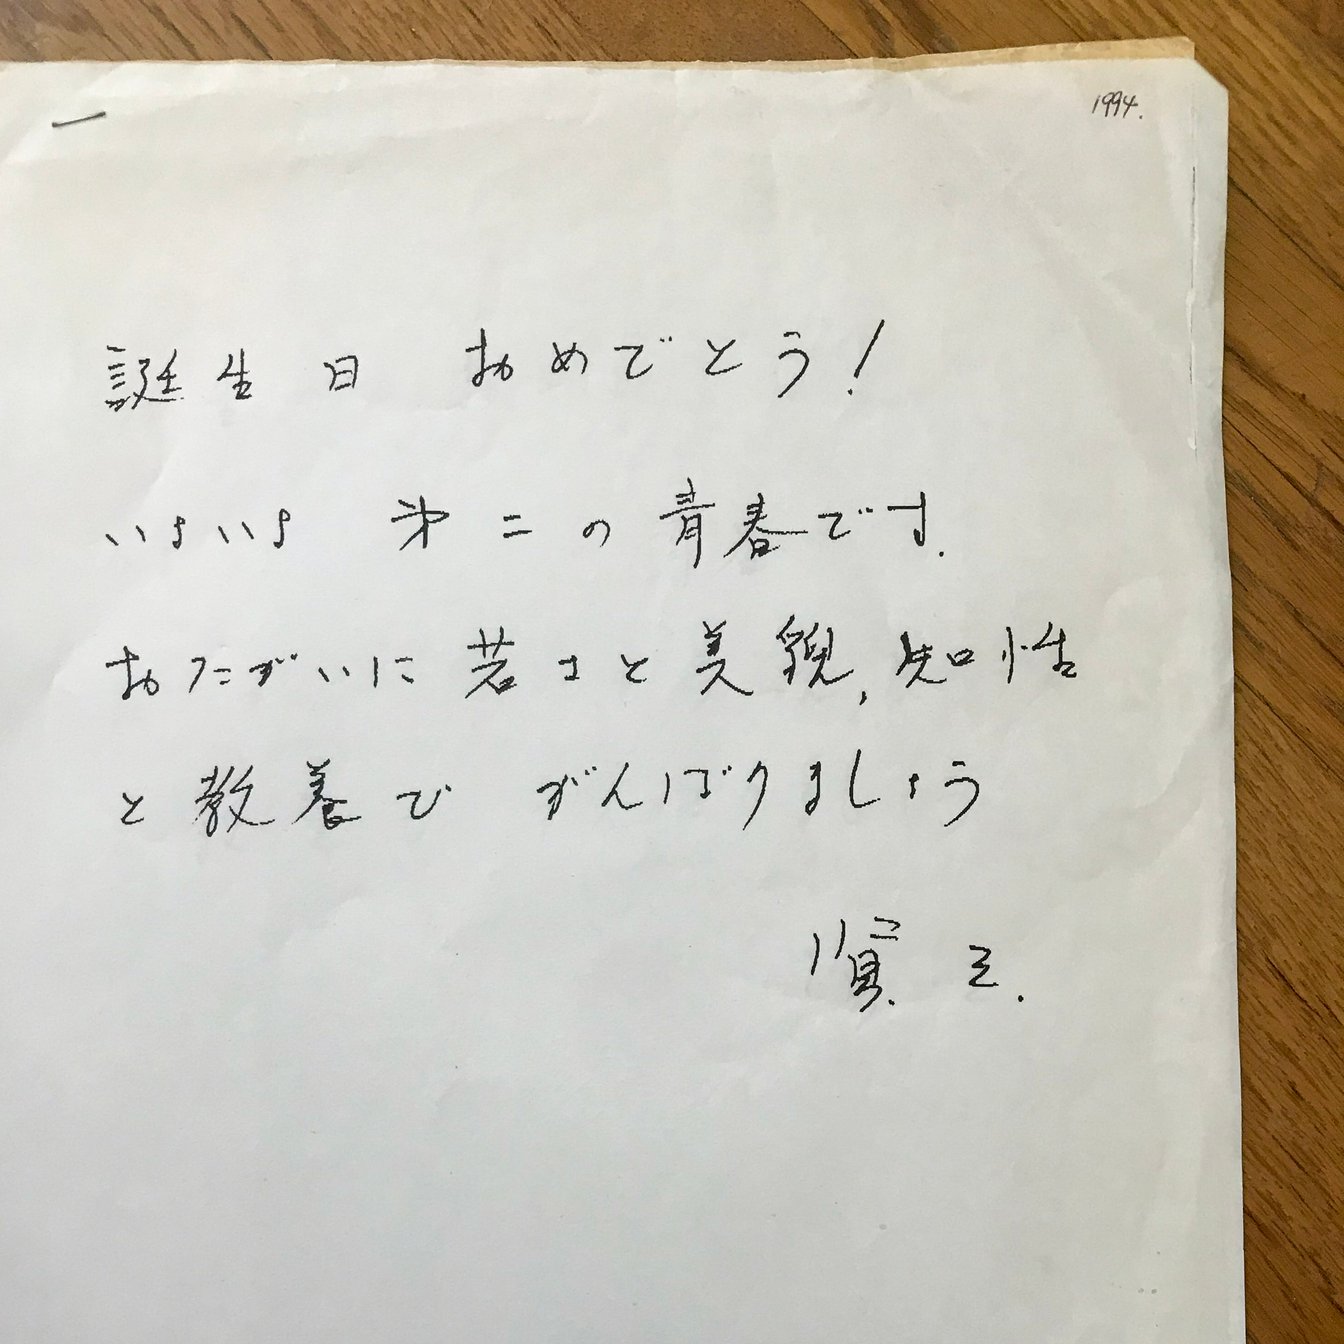 1994.
誕生日 おめでとう!
いよいよ 第二の青春です.
おたがいに若さと美貌,知性
と教養で がんばりましょう